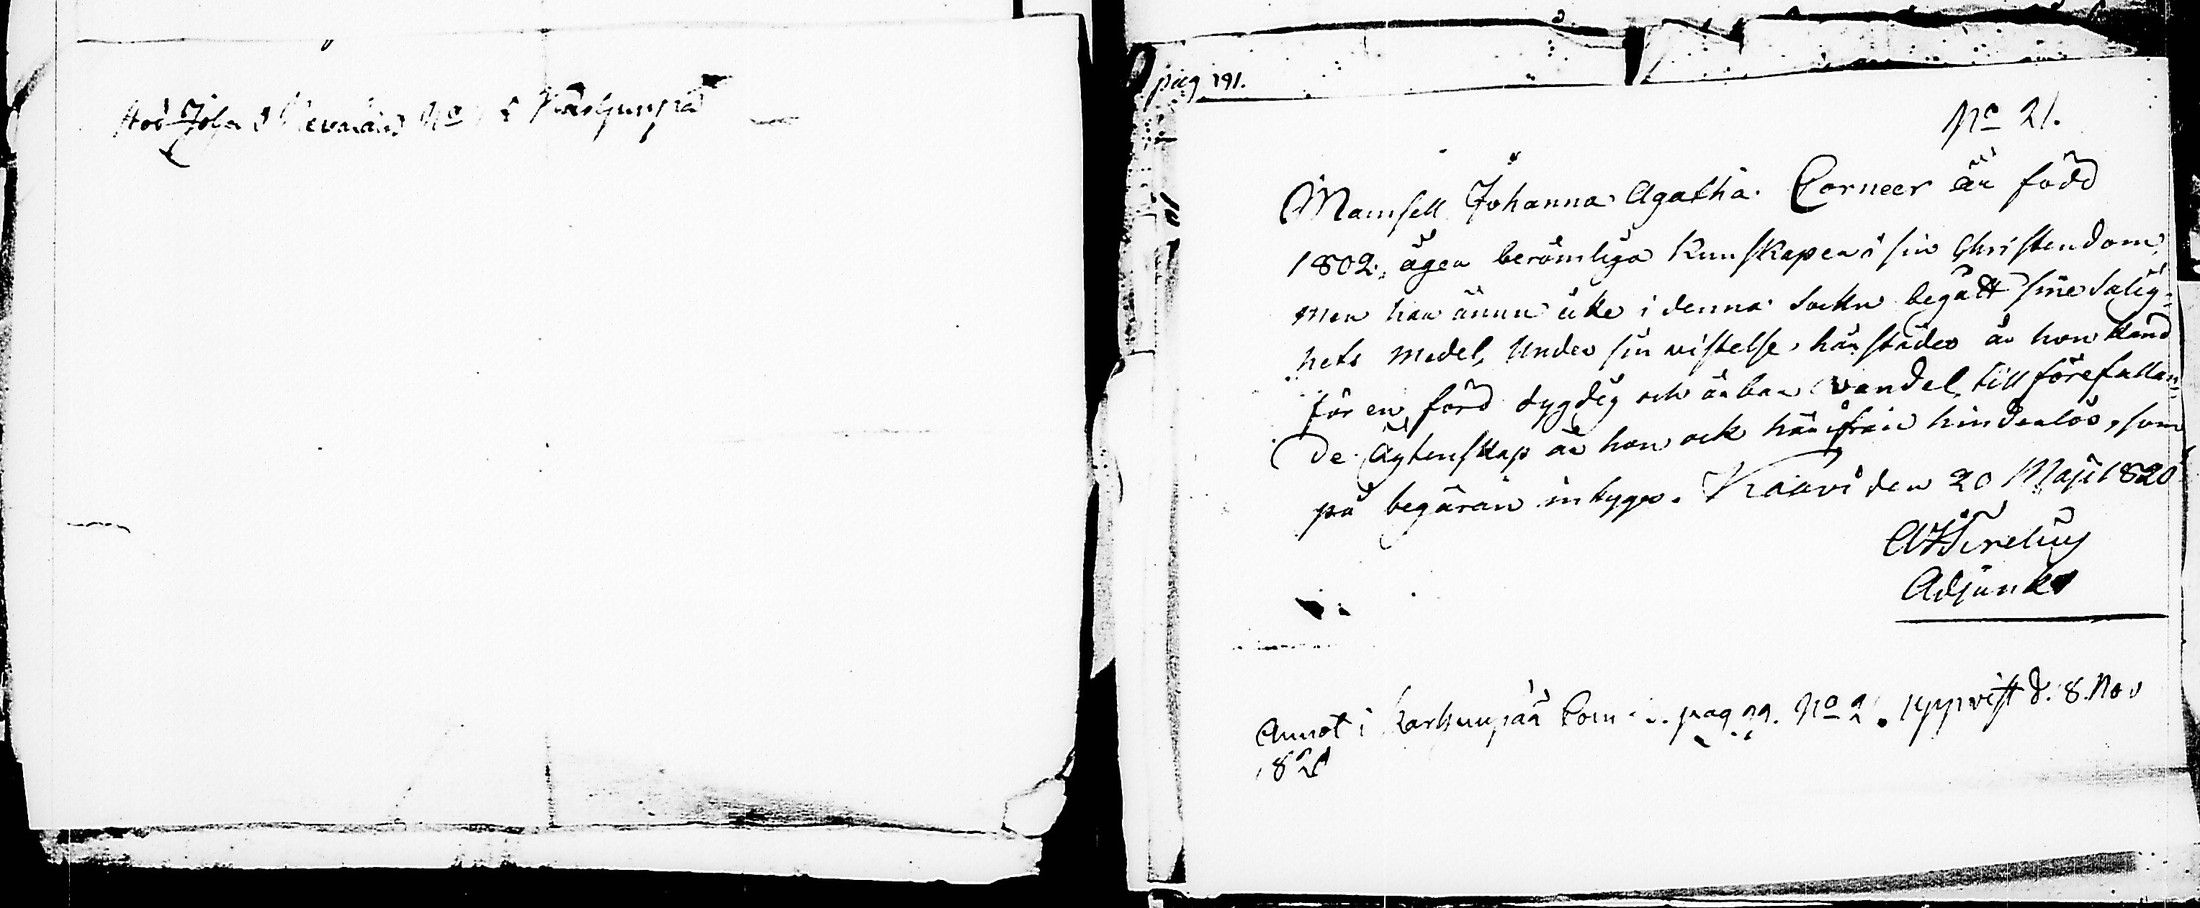 hos Joha No Karhunpää
pag 191.
No 21.
Mamsell Johanna Agatha Corneer är född
1802, äger berömliga Kunskaper i sin Christendom,
men har ännu icke i denna Sockn begått sine Salig-
hets medel, Under sin vistelse härstädes är hon känd
för en förd dygdig och ärbar vandel, till förefallan-
de Ägtenskap är hon ock härifrån hinderlös, som
på begäran intygas. Kaavi den 20 Maji 1820
Adjunkt
Annot i Karhunpää pag 99. No 2. uppvist d. 8. Nov
182